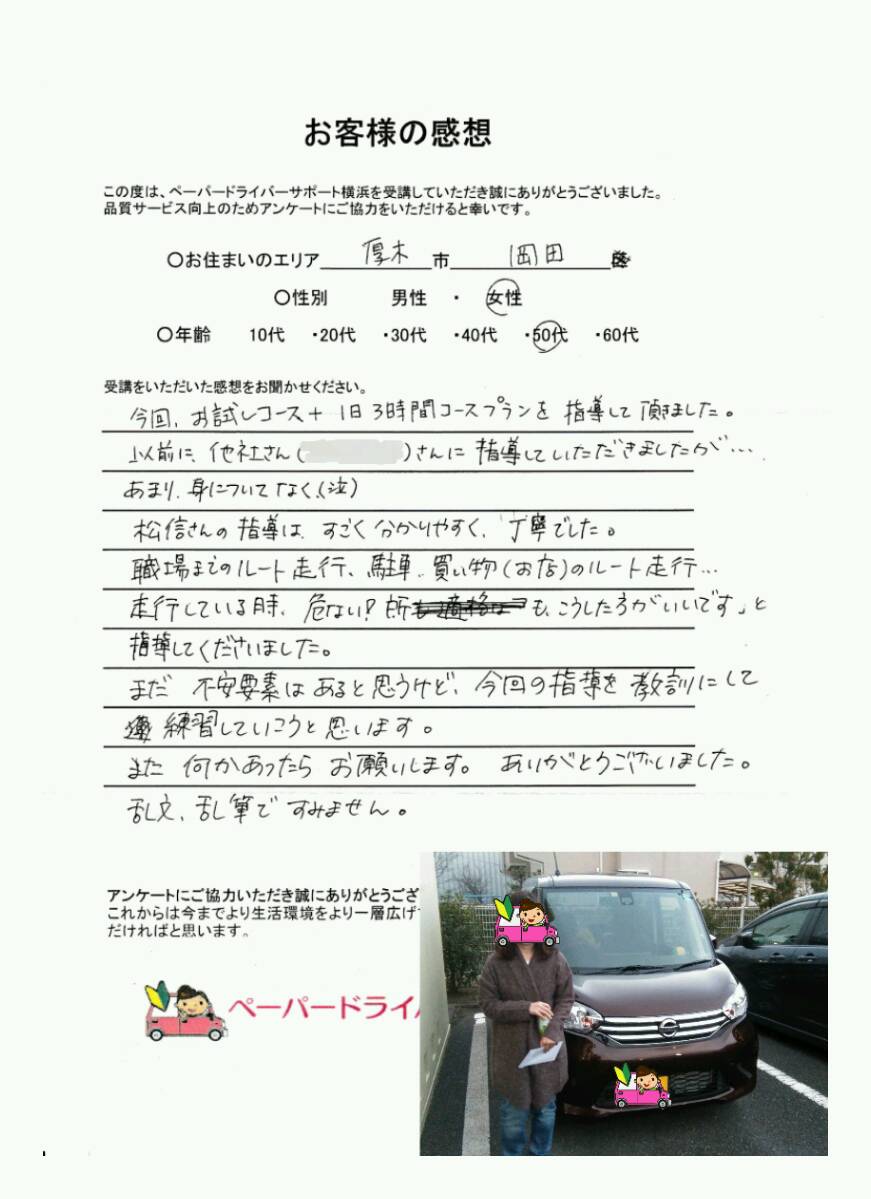 お客様の感想
この度は、ペーパードライバーサポート横浜を受講していただき誠にありがとうございました。
品質サービス向上のためアンケートにご協力をいただけると幸いです。
〇お住まいのエリア 厚木 市 岡田
〇性別 男性 ・ 女性
〇年齢 10代 ・20代 ・30代 ・40代 ・50代 ・60代
受講をいただいた感想をお聞かせください。
今回、お試しコース+1日3時間コースプランを指導して頂きました。
以前に、他社さん( )さんに指導していただきましたが…
あまり、身についてなく、(泣)
松信さんの指導は、すごく分かりやすく、丁寧でした。
職場までのルート走行、駐車、買い物(お店)のルート走行…
走行している時、危ない?所も、こうした方がいいです」と
指導してくださいました。
まだ 不安要素はあると思うけど、今回の指導を教訓にして
練習していこうと思います。
また 何かあったら お願いします。 ありがとうございました。
乱文、乱筆ですみません。
アンケートにご協力いただき誠にありがとうござ
これからは今までより生活環境をより一層広げ
だければと思います。
ペーパードライ